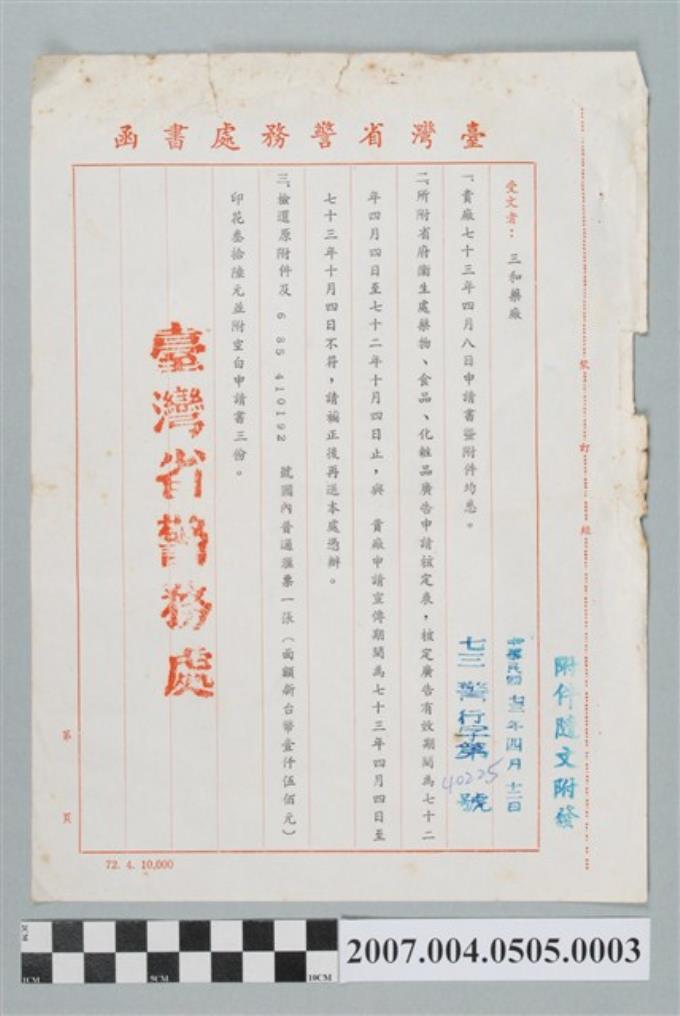 臺灣省警務處書函
附件隨文附發
裝
訂
線
中華民國七三年四月十二日
七三警行字第40225號
受文者：三和藥廠
一、貴廠七十三年四月八日申請書暨附件均悉。
二、所附省府衛生處藥物、食品、化粧品廣告申請核定表，核定廣告有效期間為七十二
年四月四日至七十二年十月四日止，與　貴廠申請宣傳期間為七十三年四月四日至
七十三年十月四日不符，請補正後再送本處憑辦。
三、檢還原附件及 6 85 410192 號國內普通匯票一張（面額新台幣壹仟伍佰元）
印花叁拾陸元並附空白申請書三份。
臺灣省警務處
第　頁
72. 4. 10,000
2CM
1CM
5CM
10CM
2007.004.0505.0003